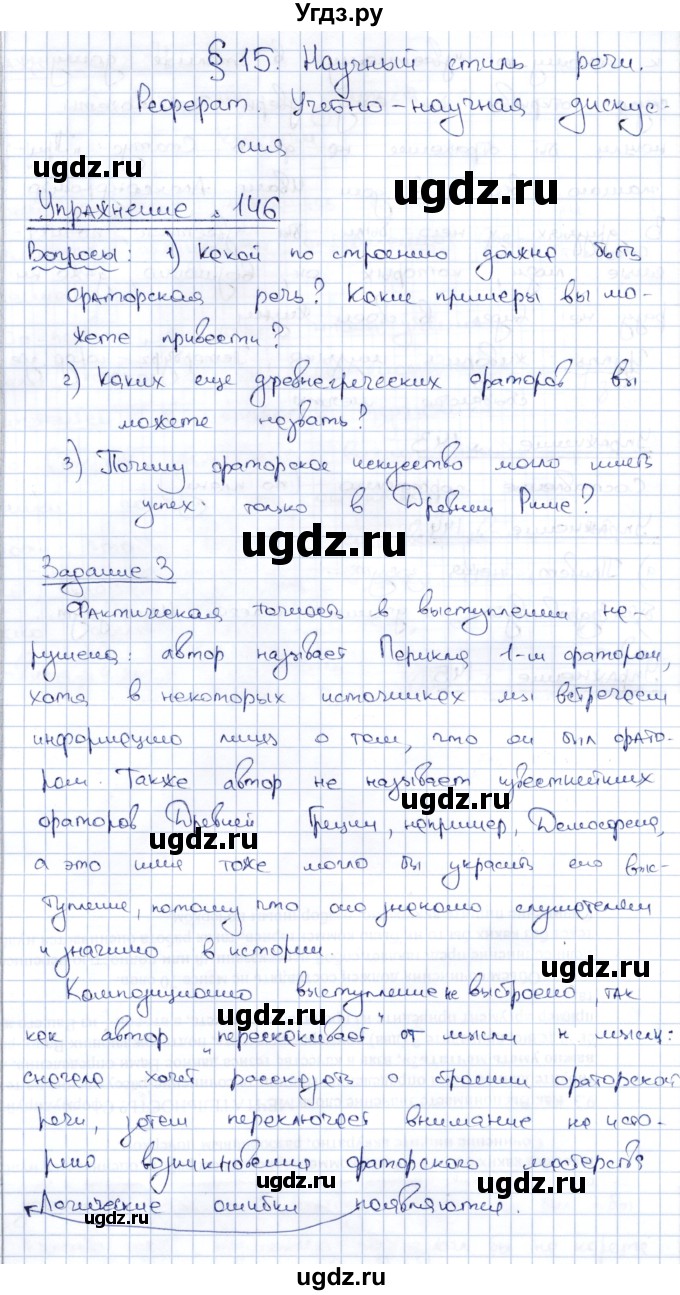 Угдз.ру
§ 15. Научный стиль речи.
Реферат. Учебно-научная дискус-
сия
ugdz.ru
ugdz.ru
Упражнение 146
Вопросы: 1) Какой по строению должна быть
ораторская речь? Какие примеры вы мо-
жете привести?
2) Каких еще древнегреческих ораторов вы
можете назвать?
3) Почему ораторское искусство могло иметь
успех только в Древнем Риме?
ugdz.ru
Задание 3
Фактическая точность в выступлении на-
рушена: автор называет Перикла 1-м оратором,
хотя в некоторых источниках мы встречаем
информацию лишь о том, что он был орато-
ром. Также автор не называет известнейших
ugdz.ru
ораторов Древней Греции, например, Демосфена,
ugdz.ru
а это имя тоже могло бы украсить его выс-
тупление, потому что оно знакомо слушателям
и значимо в истории.
ugdz.ru
Композиционно выступление не выстроено, так
ugdz.ru
как автор "перескакивает" от мысли к мысли:
сначала хочет рассказать о строении ораторской
речи, затем переключает внимание на исто-
рию возникновения ораторского мастерства
ugdz.ru
ugdz.ru
Логические ошибки появляются.
ugdz.ru
ugdz.ru